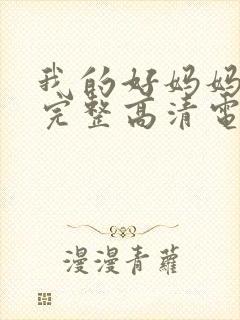 我的好妈妈
完整高清电
漫漫青蘿